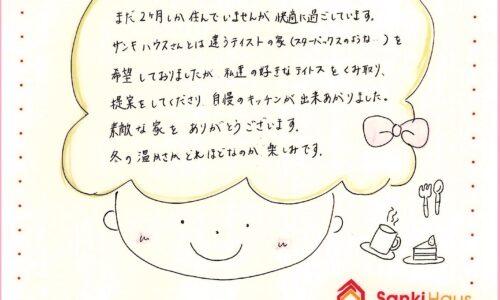 まだ2ヶ月しか住んでいませんが快適に過ごしています。
サンキハウスさんとは違うテイストの家(スターバックスのような…)を
希望しておりましたが私達の好きなテイトスをくみ取り、
提案をしてくださり自慢のキッチンが出来あがりました。
素敵な家をありがとうございます。
冬の温かさがどれほどなのか楽しみです。
SankiHaus